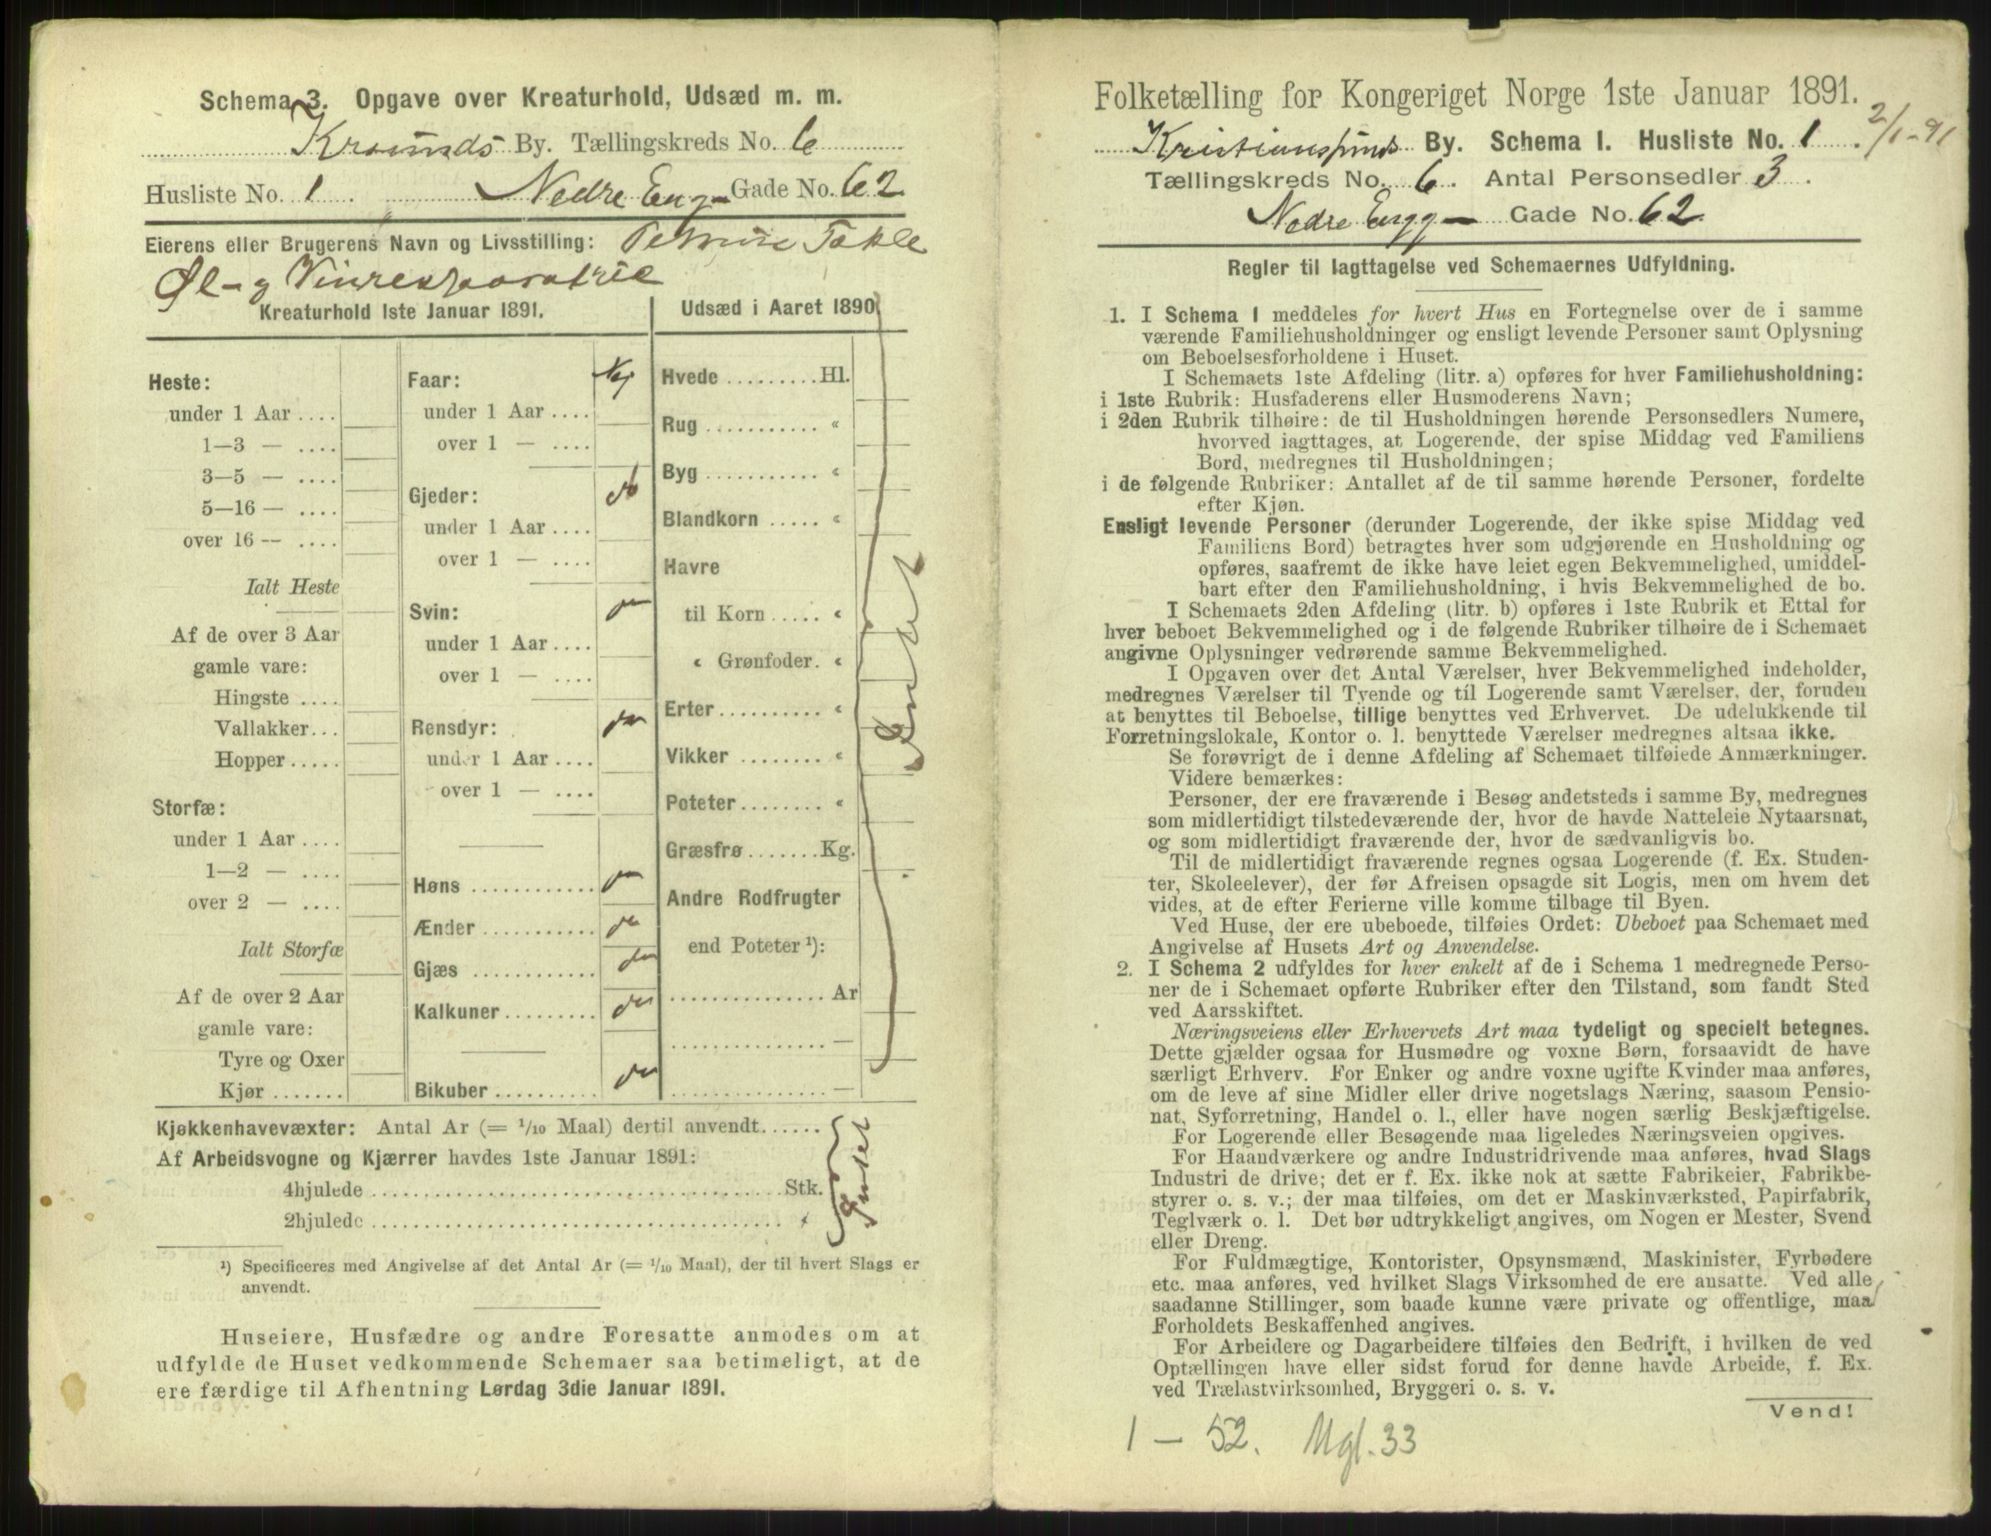 Schema 3. Opgave over Kreaturhold, Udsæd m. m.
Krsunds By. Tællingskreds No. 6
Husliste No. 1 Nedre Eng- Gade No. 62
Eierens eller Brugerens Navn og Livsstilling: Takle
Øl- og
Kreaturhold 1ste Januar 1891.
Heste:
under 1 Aar ....
1—3 — ....
3—5 — ....
5—16 — ....
over 16 -- ....
Ialt Heste
Af de over 3 Aar
gamle vare:
Hingste ....
Vallakker...
Hopper .....
Storfæ:
under 1 Aar ....
1—2 — ....
over 2 — ....
Ialt Storfæ
Af de over 2 Aar
gamle vare:
Tyre og Oxer
Kjør .......
Faar: Nej
under 1 Aar ....
over 1 — ....
Gjeder: do
under 1 Aar ....
over 1 — ....
Svin: do
under 1 Aar ....
over 1 — ....
Rensdyr: do
under 1 Aar ....
over 1 — ....
Høns ............ do
Ænder ........... do
Gjæs ............ do
Kalkuner......... do
Bikuber .......... do
Udsæd i Aaret 1890
Hvede .........Hl.
Rug ........... "
Byg ........... "
Blandkorn ..... "
Havre
til Korn ..... "
" Grønfoder. "
Erter.......... "
Vikker ........ "
Poteter........ "
Græsfrø.......Kg.
Andre Rodfrugter
end Poteter ¹):
...............Ar
............... —
............... —
Intet
Kjøkkenhavevæxter: Antal Ar (= 1/10 Maal) dertil anvendt......
Af Arbeidsvogne og Kjærrer havdes 1ste Januar 1891:
4hjulede ........................................Stk.
2hjulede ........................................ "
Intet
¹) Specificeres med Angivelse af det Antal Ar (= 1/10 Maal), der til hvert Slags er
anvendt.
Huseiere, Husfædre og andre Foresatte anmodes om at
udfylde de Huset vedkommende Schemaer saa betimeligt, at de
ere færdige til Afhentning Lørdag 3die Januar 1891.
Folketælling for Kongeriget Norge 1ste Januar 1891.
Kristianssunds By. Schema I. Husliste No. 1. 2/1-91
Tællingskreds No. 6. Antal Personsedler 3.
Nedre Engg- Gade No. 62.
Regler til Iagttagelse ved Schemaernes Udfyldning.
1. I Schema 1 meddeles for hvert Hus en Fortegnelse over de i samme
værende Familiehusholdninger og ensligt levende Personer samt Oplysning
om Beboelsesforholdene i Huset.
I Schemaets 1ste Afdeling (litr. a) opføres for hver Familiehusholdning:
i 1ste Rubrik: Husfaderens eller Husmoderens Navn;
i 2den Rubrik tilhøire: de til Husholdningen hørende Personsedlers Numere,
hvorved iagttages, at Logerende, der spise Middag ved Familiens
Bord, medregnes til Husholdningen;
i de følgende Rubriker: Antallet af de til samme hørende Personer, fordelte
efter Kjøn.
Ensligt levende Personer (derunder Logerende, der ikke spise Middag ved
Familiens Bord) betragtes hver som udgjørende en Husholdning og
opføres, saafremt de ikke have leiet egen Bekvemmelighed, umiddel-
bart efter den Familiehusholdning, i hvis Bekvemmelighed de bo.
I Schemaets 2den Afdeling (litr. b) opføres i 1ste Rubrik et Ettal for
hver beboet Bekvemmelighed og i de følgende Rubriker tilhøire de i Schemaet
angivne Oplysninger vedrørende samme Bekvemmelighed.
I Opgaven over det Antal Værelser, hver Bekvemmelighed indeholder,
medregnes Værelser til Tyende og til Logerende samt Værelser, der, foruden
at benyttes til Beboelse, tillige benyttes ved Erhvervet. De udelukkende til
Forretningslokale, Kontor o. l. benyttede Værelser medregnes altsaa ikke.
Se forøvrigt de i denne Afdeling af Schemaet tilføiede Anmærkninger.
Videre bemærkes:
Personer, der ere fraværende i Besøg andetsteds i samme By, medregnes
som midlertidigt tilstedeværende der, hvor de havde Natteleie Nytaarsnat,
og som midlertidigt fraværende der, hvor de sædvanligvis bo.
Til de midlertidigt fraværende regnes ogsaa Logerende (f. Ex. Studen-
ter, Skoleelever), der før Afreisen opsagde sit Logis, men om hvem det
vides, at de efter Ferierne ville komme tilbage til Byen.
Ved Huse, der ere ubeboede, tilføies Ordet: Ubeboet paa Schemaet med
Angivelse af Husets Art og Anvendelse.
2. I Schema 2 udfyldes for hver enkelt af de i Schema 1 medregnede Perso-
ner de i Schemaet opførte Rubriker efter den Tilstand, som fandt Sted
ved Aarsskiftet.
Næringsveiens eller Erhvervets Art maa tydeligt og specielt betegnes.
Dette gjælder ogsaa for Husmødre og voxne Børn, forsaavidt de have
særligt Erhverv. For Enker og andre voxne ugifte Kvinder maa anføres,
om de leve af sine Midler eller drive nogetslags Næring, saasom Pensio-
nat, Syforretning, Handel o. l., eller have nogen særlig Beskjæftigelse.
For Logerende eller Besøgende maa ligeledes Næringsveien opgives.
For Haandværkere og andre Industridrivende maa anføres, hvad Slags
Industri de drive; det er f. Ex. ikke nok at sætte Fabrikeier, Fabrikbe-
styrer o. s. v.; der maa tilføies, om det er Maskinværksted, Papirfabrik,
Teglværk o. l. Det bør udtrykkeligt angives, om Nogen er Mester, Svend
eller Dreng.
For Fuldmægtige, Kontorister, Opsynsmænd, Maskinister, Fyrbødere
etc. maa anføres, ved hvilket Slags Virksomhed de ere ansatte. Ved alle
saadanne Stillinger, som baade kunne være private og offentlige, maa
Forholdets Beskaffenhed angives.
For Arbeidere og Dagarbeidere tilføies den Bedrift, i hvilken de ved
Optællingen have eller sidst forud for denne havde Arbeide, f. Ex.
ved Trælastvirksomhed, Bryggeri o. s. v.
Vend!
1 — 52. Mgl. 33